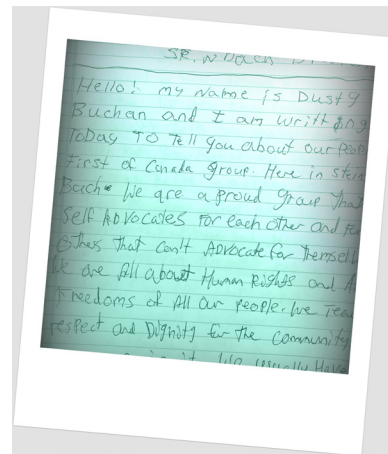 Hello! my Name is Dusty
Buchan and I am writting
ToDay TO Tell you about our
First of Canada group. Here in
Bach We are a proud Group That
Self ADVocates For each other and
Others That can't ADVocate for
We are All about Human Rights and
Freedoms of All our People. We
respect and Dignity for The Community
We usually Have